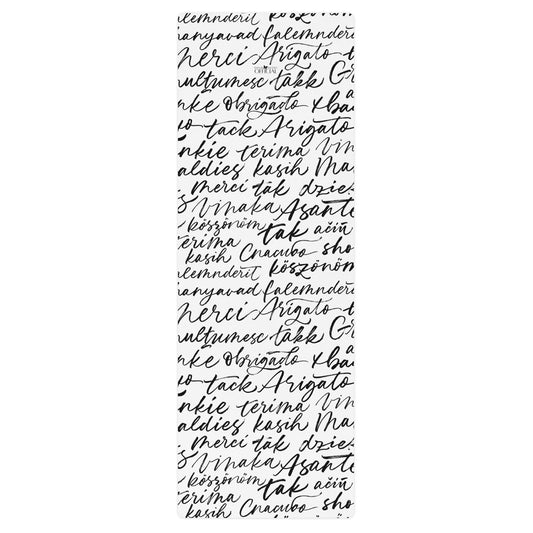 falemnderit
hanyavad falemnderit
Merci Arigato
OFFICIAL
multumesc takk Gr
nke obrigado хва
tack Arigato
nkie terima Vin
aldies kasih Ma
merci tāk dzie
Vinaka Asante
köszönöm tak ačiū
terima
kasih Спасибо sho
lemnderit köszönöm
hanyavad falemnderit
Merci Arigato
multumesc takk Gr
nke obrigado хва
tack Arigato
nkie terima Vin
aldies kasih Ma
merci tāk dzie
Vinaka Asante
köszönöm tak ačiū
terima
kasih Спасибо sho